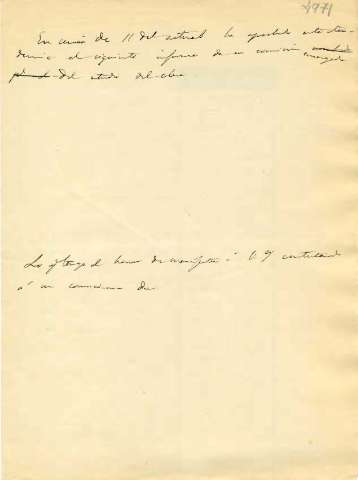 4971
En sesión de 11 del actual ha aprobado esta Aca-
demia el siguiente informe de su comisión encargada
del estudio del
Lo q tengo el honor de manifestar á V. E. contestando
á su comunicación de